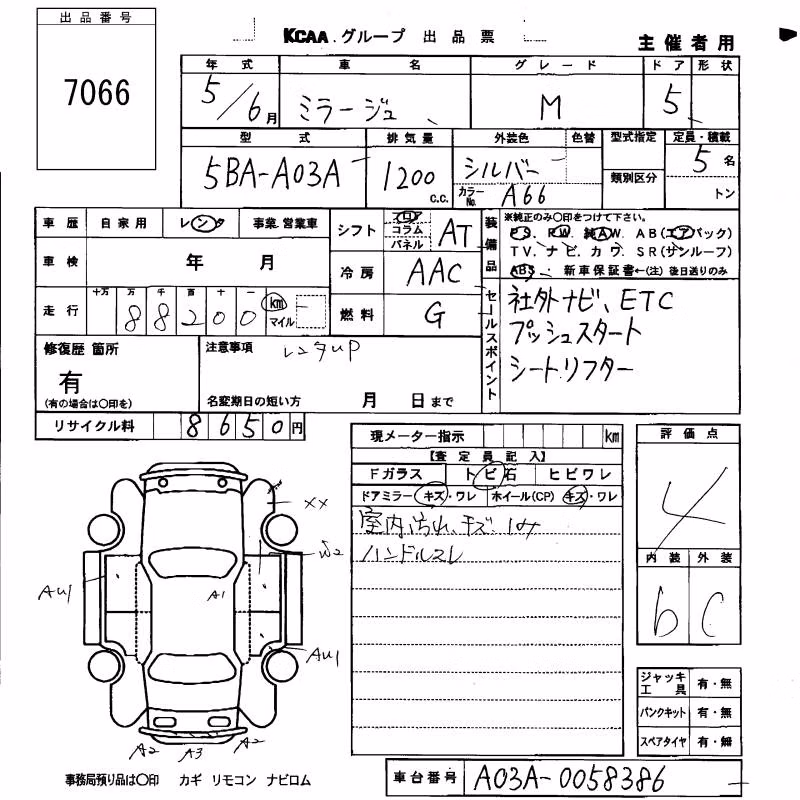 出品番号
7066
KCAA.グループ 出品票
主催者用
年式 車名 グレード ドア 形状
5/6月 ミラージュ M 5
型式 排気量 外装色 色替 型式指定 定員・積載
5BA-A03A 1200 c.c. シルバー 5名
類別区分
カラーNo. A66 トン
車歴 自家用 レンタ 事業.営業車
シフト フロア コラム パネル AT
装備品
※純正のみ〇印をつけて下さい。
PS. PW. 純AW. AB(エアバック)
TV. ナビ. カワ. SR(サンルーフ)
ABS. 新車保証書←(注) 後日送りのみ
車検 年 月
冷房 AAC
走行 十万 万 千 百 十 一
88200 km マイル
燃料 G
セールスポイント
社外ナビ、ETC
プッシュスタート
シートリフター
修復歴 箇所
有
(有の場合は〇印を)
注意事項 レンタup
名変期日の短い方 月 日まで
リサイクル料 8650円
現メーター指示 km
【査定員記入】
Fガラス トビ石 ヒビワレ
ドアミラー キズ・ワレ ホイール(CP) キズ・ワレ
室内汚れ、キズ、
ハンドルスレ
評価点
4
内装 外装
b C
XX
W2
AU1
A1
AU1
A2 A3 A2
ジャッキ工具 有・無
パンクキット 有・無
スペアタイヤ 有・無
事務局預り品は〇印 カギ リモコン ナビロム
車台番号 A03A-0058386